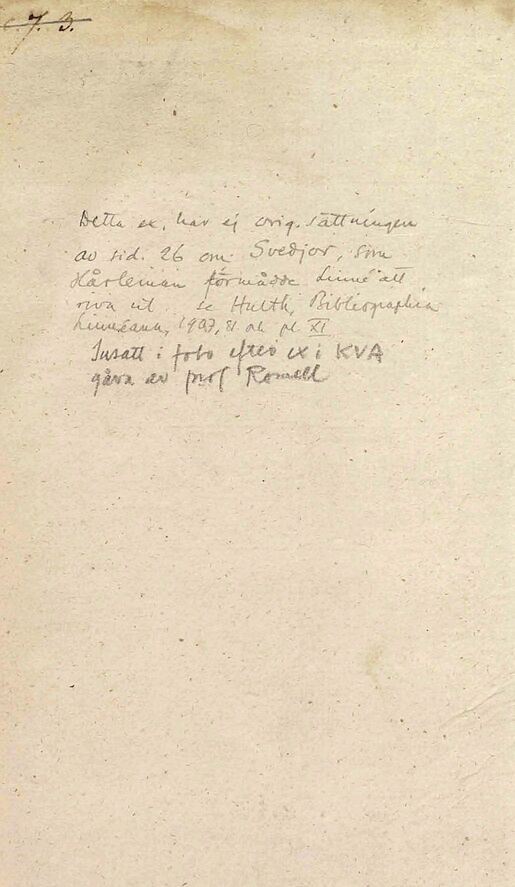 c. 7. 3.
Detta ex. har ej orig. sättningen
av sid. 26 om Svedjor, som
Hårleman förmådde Linné att
riva ut. se Hulth, Bibliographia
Linnéana, 1907, s. och pl XI
Insatt i foto efter ex i KVA
gåva av prof Romell